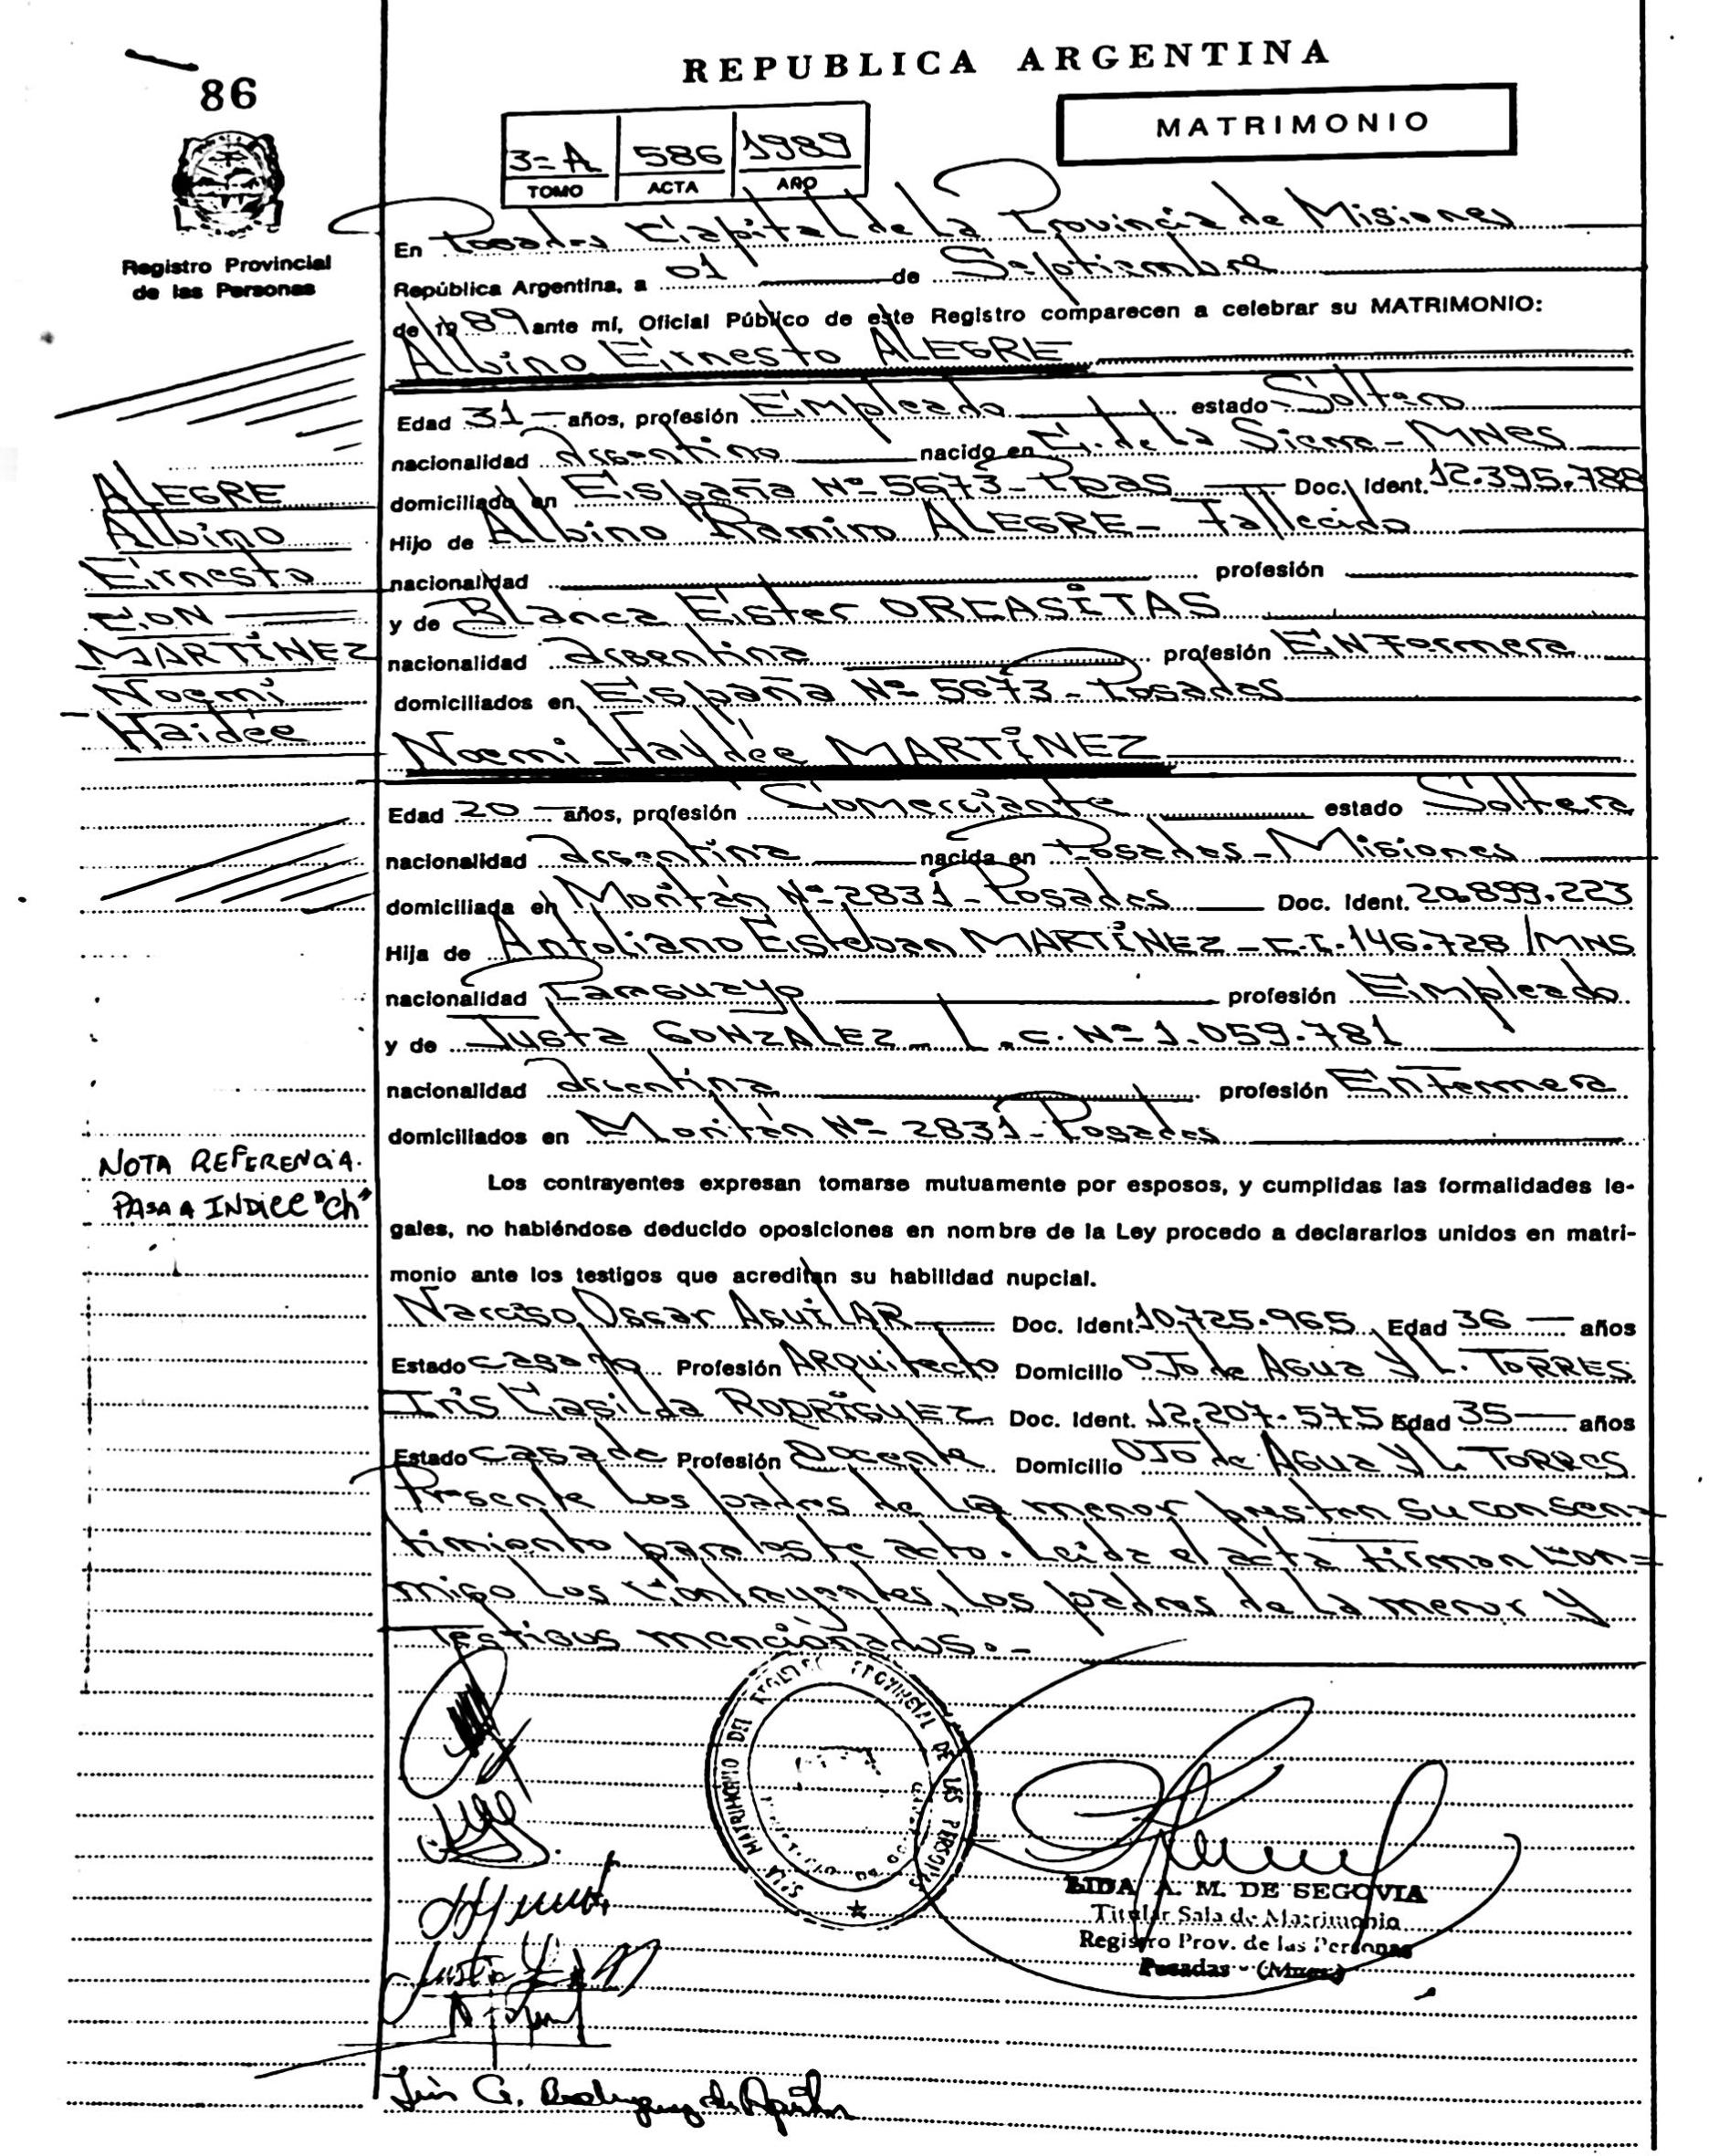 86
REPUBLICA ARGENTINA
MATRIMONIO
3=A 586 1989
TOMO ACTA AÑO
Registro Provincial
de las Personas
En Posadas Capital de La Provincia de Misiones
República Argentina, a 01 de Septiembre
de 1989 ante mí, Oficial Público de este Registro comparecen a celebrar su MATRIMONIO:
Albino Ernesto ALEGRE
Edad 31 años, profesión Empleado estado Soltero
nacionalidad argentino nacido en C. de La Sierra - MNES
domiciliado en España Nº 5673 - Pdas Doc. Ident. 12.395.788
Hijo de Albino Ramiro ALEGRE - Fallecido
nacionalidad profesión
y de Blanca Ester ORCASITAS
nacionalidad argentina profesión ENFermera
domiciliados en España Nº 5673 - Posadas
ALEGRE
Albino
Ernesto
CON
MARTINEZ
Noemi
Haidée
Noemi Haydée MARTINEZ
Edad 20 años, profesión Comerciante estado Soltera
nacionalidad argentina nacida en Posadas - Misiones
domiciliada en Nº 2831 - Posadas Doc. Ident. 20.899.223
Hija de Antoliano Esteban MARTINEZ - C.I. 146.728 /MNS
nacionalidad Paraguayo profesión Empleado
y de Justa GONZALEZ - L.C. Nº 1.059.781
nacionalidad argentina profesión Enfermera
domiciliados en Nº 2831 - Posadas
NOTA REFERENCIA.
PASA A INDICE "Ch"
Los contrayentes expresan tomarse mutuamente por esposos, y cumplidas las formalidades le-
gales, no habiéndose deducido oposiciones en nombre de la Ley procedo a declararlos unidos en matri-
monio ante los testigos que acreditan su habilidad nupcial.
Narciso Oscar AGUILAR Doc. Ident. 10.725.965 Edad 36 años
Estado casado Profesión ARquitecto Domicilio OJo de AGUa y L. TORRES
Iris Casilda RODRIGUEZ Doc. Ident. 12.207.575 Edad 35 años
Estado casada Profesión Docente Domicilio OJo de AGUa y L. TORRES
Presente Los padres de La menor prestan su consen=
timiento para este acto. Leida el acta Firman con=
migo Los contrayentes, Los padres de La menor y
Testigos mencionados.-
SALA MATRIMONIO DEL REGISTRO PROVINCIAL DE LAS PERSONAS
LIDA A. M. DE SEGOVIA
Titular Sala de Matrimonio
Registro Prov. de las Personas
Posadas - (Mnes)